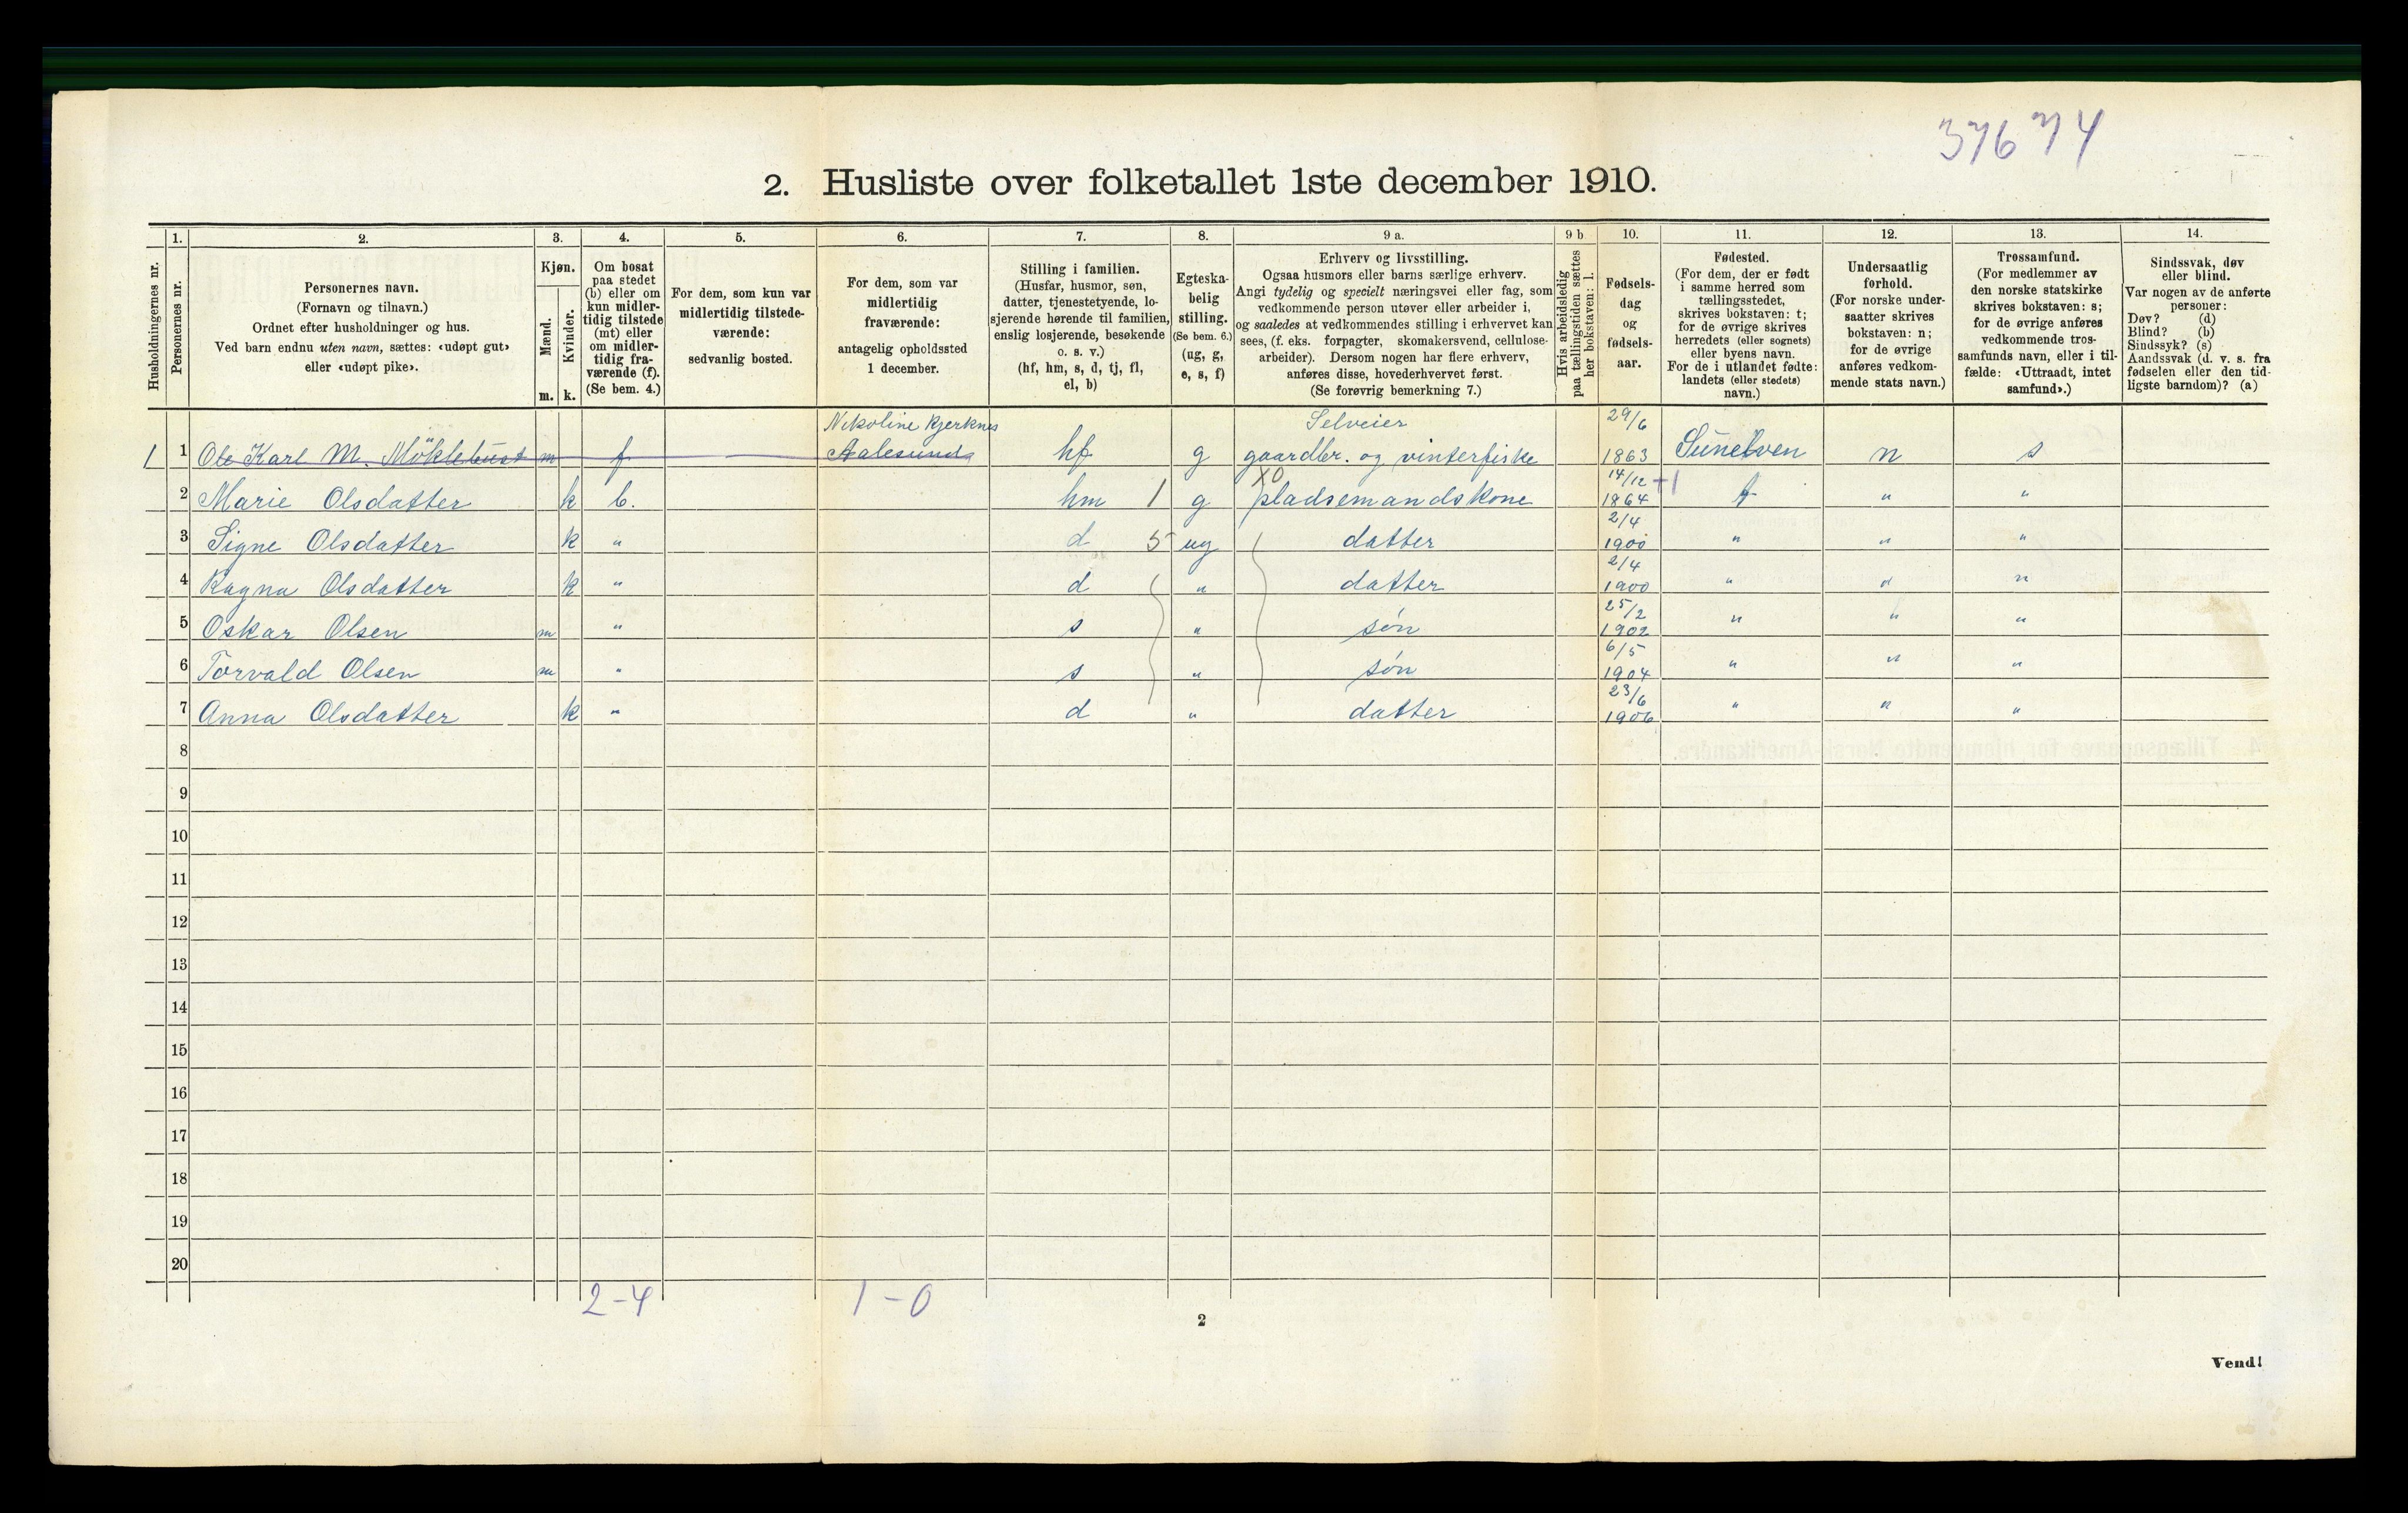 37674
2. Husliste over folketallet 1ste december 1910.
Husholdningernes nr.
1.
Personernes nr.
2.
Personernes navn.
(Fornavn og tilnavn.)
Ordnet efter husholdninger og hus.
Ved barn endnu uten navn, sættes: «udøpt gut»
eller «udøpt pike».
3.
Kjøn.
Mænd.
Kvinder.
m. k.
4.
Om bosat
paa stedet
(b) eller om
kun midler-
tidig tilstede
(mt) eller
om midler-
tidig fra-
værende (f).
(Se bem. 4.)
5.
For dem, som kun var
midlertidig tilstede-
værende:
sedvanlig bosted.
6.
For dem, som var
midlertidig
fraværende:
antagelig opholdssted
1 december.
7.
Stilling i familien.
(Husfar, husmor, søn,
datter, tjenestetyende, lo-
sjerende hørende til familien,
enslig losjerende, besøkende
o. s. v.)
(hf, hm, s, d, tj, fl,
el, b)
8.
Egteska-
belig
stilling.
(Se bem. 6.)
(ug, g,
e, s, f)
9 a.
Erhverv og livsstilling.
Ogsaa husmors eller barns særlige erhverv.
Angi tydelig og specielt næringsvei eller fag, som
vedkommende person utøver eller arbeider i,
og saaledes at vedkommendes stilling i erhvervet kan
sees, (f. eks. forpagter, skomakersvend, cellulose-
arbeider). Dersom nogen har flere erhverv,
anføres disse, hovederhvervet først.
(Se forøvrig bemerkning 7.)
9 b
Hvis arbeidsledig
paa tællingstiden sættes
her bokstaven: l.
10.
Fødsels-
dag
og
fødsels-
aar.
11.
Fødested.
(For dem, der er født
i samme herred som
tællingsstedet,
skrives bokstaven: t;
for de øvrige skrives
herredets (eller sognets)
eller byens navn.
For de i utlandet fødte:
landets (eller stedets)
navn.)
12.
Undersaatlig
forhold.
(For norske under-
saatter skrives
bokstaven: n;
for de øvrige
anføres vedkom-
mende stats navn.)
13.
Trossamfund.
(For medlemmer av
den norske statskirke
skrives bokstaven: s;
for de øvrige anføres
vedkommende tros-
samfunds navn, eller i til-
fælde: «Uttraadt, intet
samfund».)
14.
Sindssvak, døv
eller blind.
Var nogen av de anførte
personer:
Døv? (d)
Blind? (b)
Sindssyk? (s)
Aandssvak (d. v. s. fra
fødselen eller den tid-
ligste barndom)? (a)
Nikoline Kjerknes Selveier 29/6
1 1 Ole Karl M. Möklebust m f Aalesund hf g gaardbr. og vinterfiske 1863 Sunelven n s
XO 14/12 +1
2 Marie Olsdatter k b. hm 1 g pladsemandskone 1864 t " "
2/4
3 Signe Olsdatter k " d 5 ug datter 1900 " " "
2/4
4 Ragna Olsdatter k " d " datter 1900 " " "
25/2
5 Oskar Olsen m " s " søn 1902 " " "
6/5
6 Torvald Olsen m " s " søn 1904 " " "
23/6
7 Anna Olsdatter k " d " datter 1906 " " "
8
9
10
11
12
13
14
15
16
17
18
19
20
2-4 1-0
2
Vend!